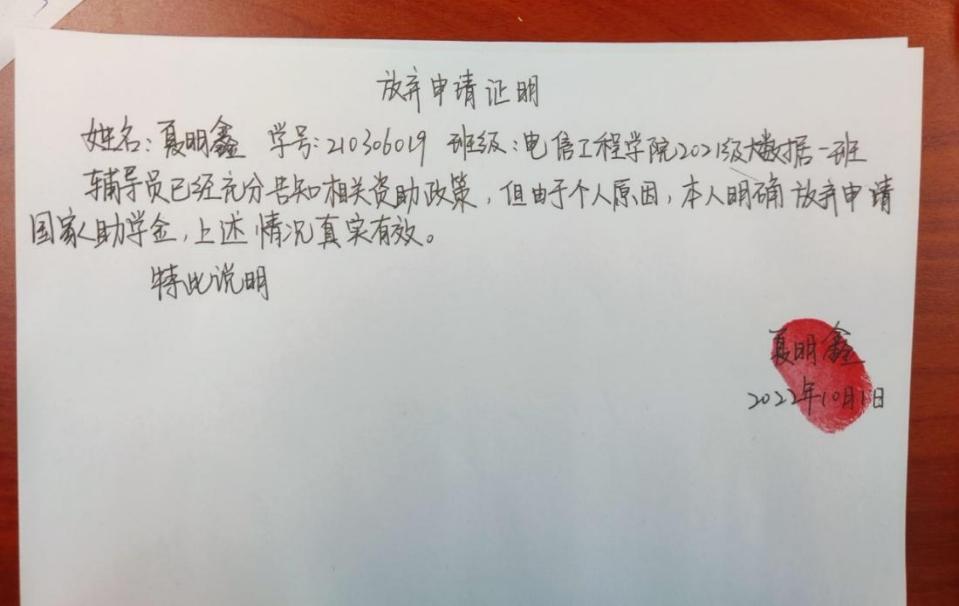 放弃申请证明
姓名:夏明鑫 学号:210306019 班级:电信工程学院2021级大数据一班
辅导员已经充分告知相关资助政策,但由于个人原因,本人明确放弃申请
国家助学金,上述情况真实有效。
特此说明
夏明鑫
2022年10月1日